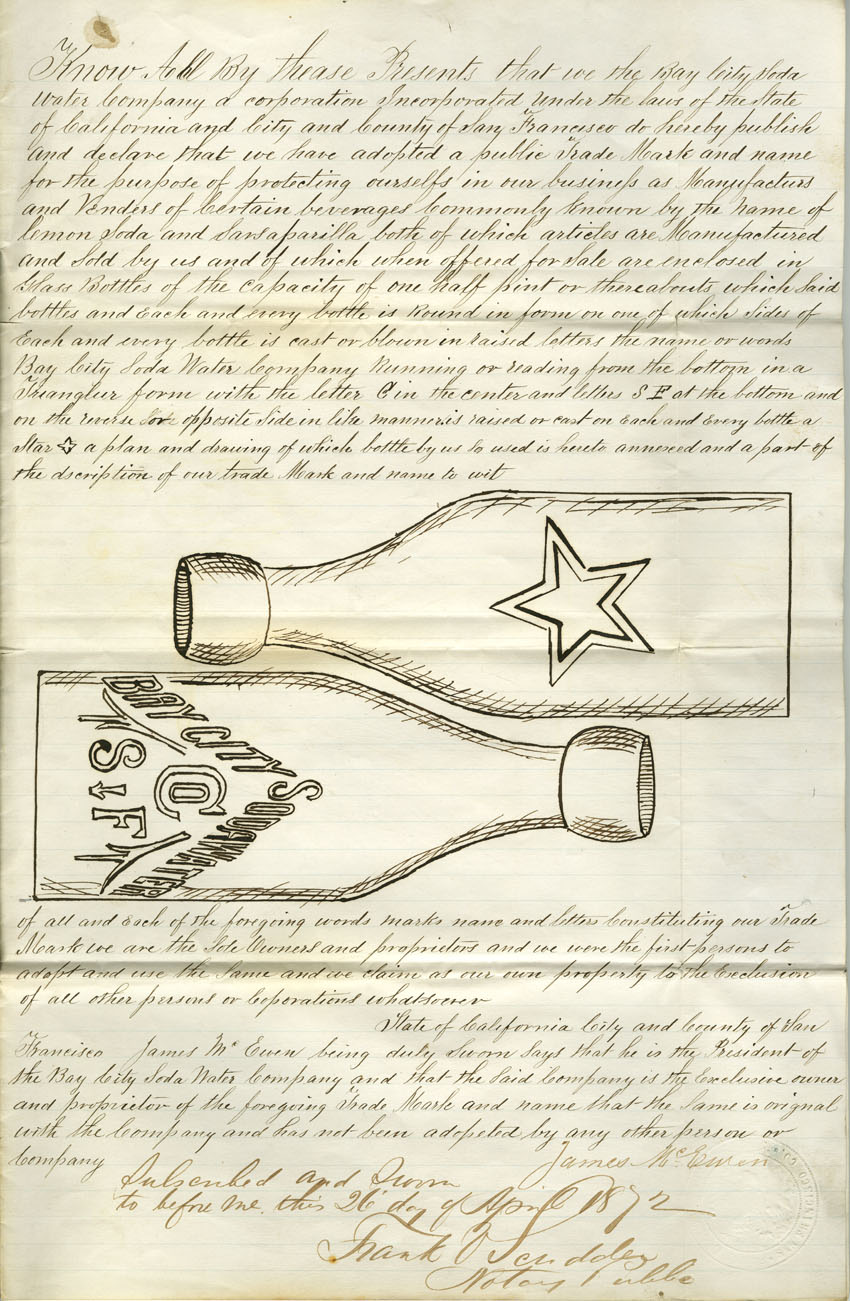 Know All By thease Presents that we the Bay City Soda
water Company a corporation Incorporated under the laws of the State
of California and City and County of San Francisco do hereby publish
and declare that we have adopted a public Trade Mark and name
for the purpose of protecting ourselfs in our business as Manufacturs
and Venders of Certain beverages Commonly Known by the Name of
lemon Soda and Sarsaparilla both of which articles are Manufactured
and Sold by us and of which when offered for Sale are enclosed in
Glass Bottles of the capacity of one half pint or thereabouts which Said
bottles and Each and every bottle is Round in form on one of which Sides of
Each and every bottle is cast or blown in raised letters the name or words
Bay City Soda Water Company Running or reading from the bottom in a
Trianglur form with the letter C in the center and letters S F at the bottom and
on the reverse or opposite Side in like manner is raised or cast on Each and Every bottle a
Star ☆ a plan and drawing of which bottle by us So used is hereto annexced and a part of
the dscription of our trade Mark and name to wit
BAY CITY
SODAWATER
C
S F
of all and Each of the foregoing words marks name and letters Constituting our Trade
Mark we are the Sole Owners and proprietors and we were the first persons to
adopt and use the Same and we claim as our own property to the Exclusion
of all other persons or Coporations whatsoever
State of California City and County of San
Francisco James McEwen being duly Sworn Says that he is the President of
the Bay City Soda Water Company and that the Said Company is the Exclusive owner
and proprietor of the foregoing Trade Mark and name that the Same is orignal
with the Company and has not been adopeted by any other person or
Company
James McEwen
Subscribed and Sworn
to before me this 26 day of April 1872
Frank V Scudder
Notary Public